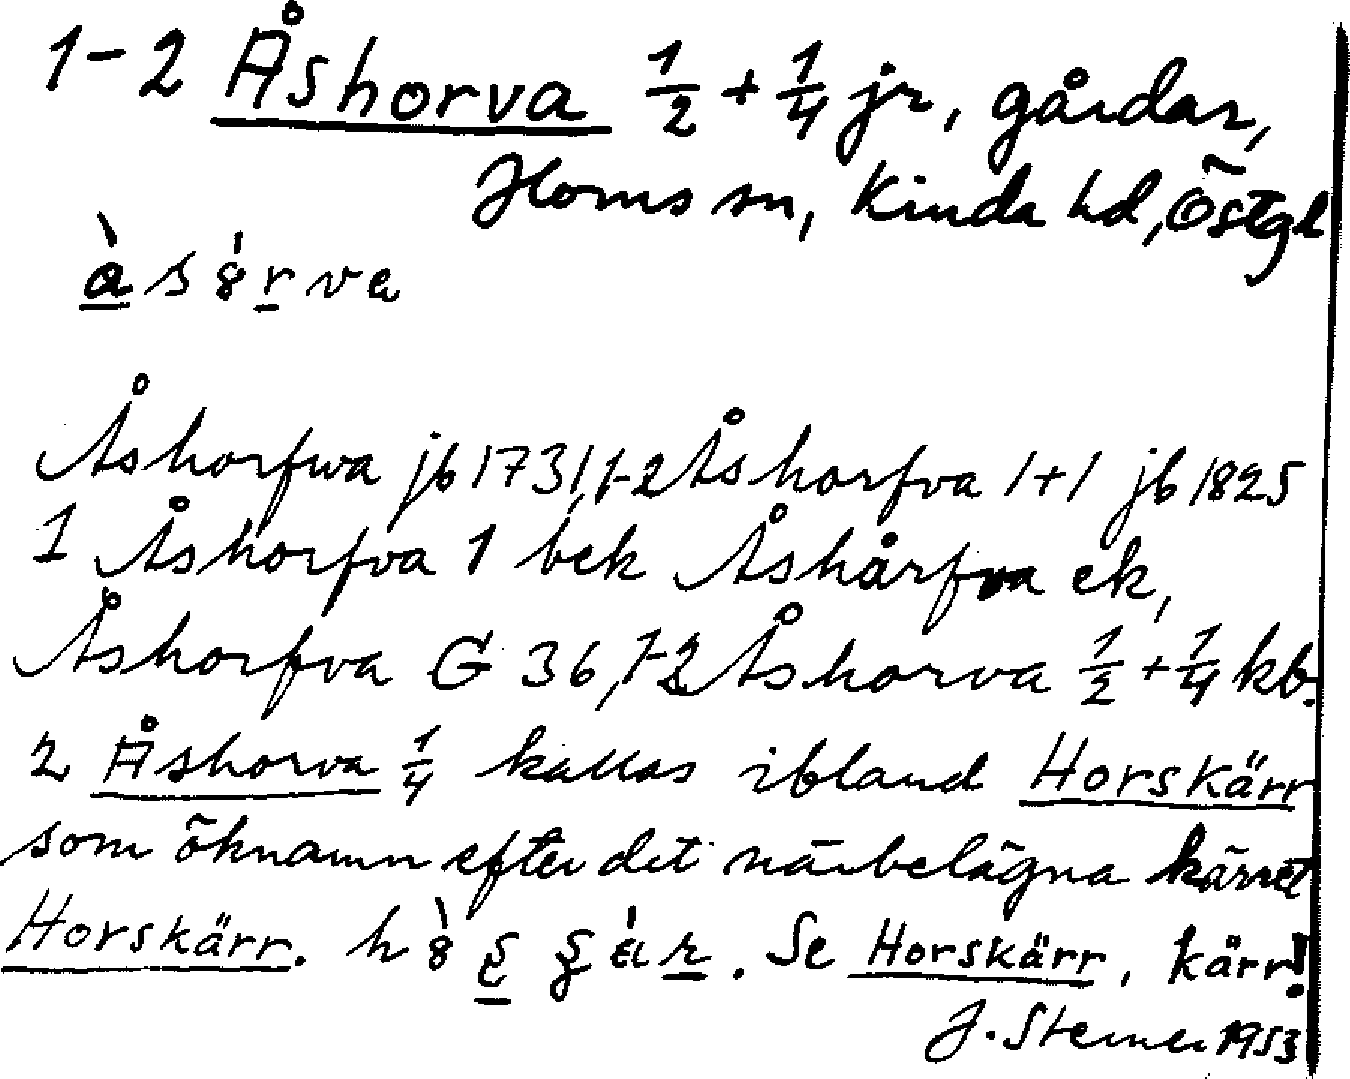 1-2 Åshorva 1/2 + 1/4 jr, gårdar,
Horns sn, Kinda hd, Östgl
Åshorfwa jb 1731, 1-2 Åshorfva 1+1 jb 1825
1 Åshorfva 1 bek Åshårfva ek,
Åshorfva G 36, 1-2 Åshorva 1/2 + 1/4 kb.
2 Åshorva 1/4 kallas ibland Horskärr
som öknamn efter det närbelägna kärret
Horskärr. Se Horskärr, kärr!
J. Sterner 1953